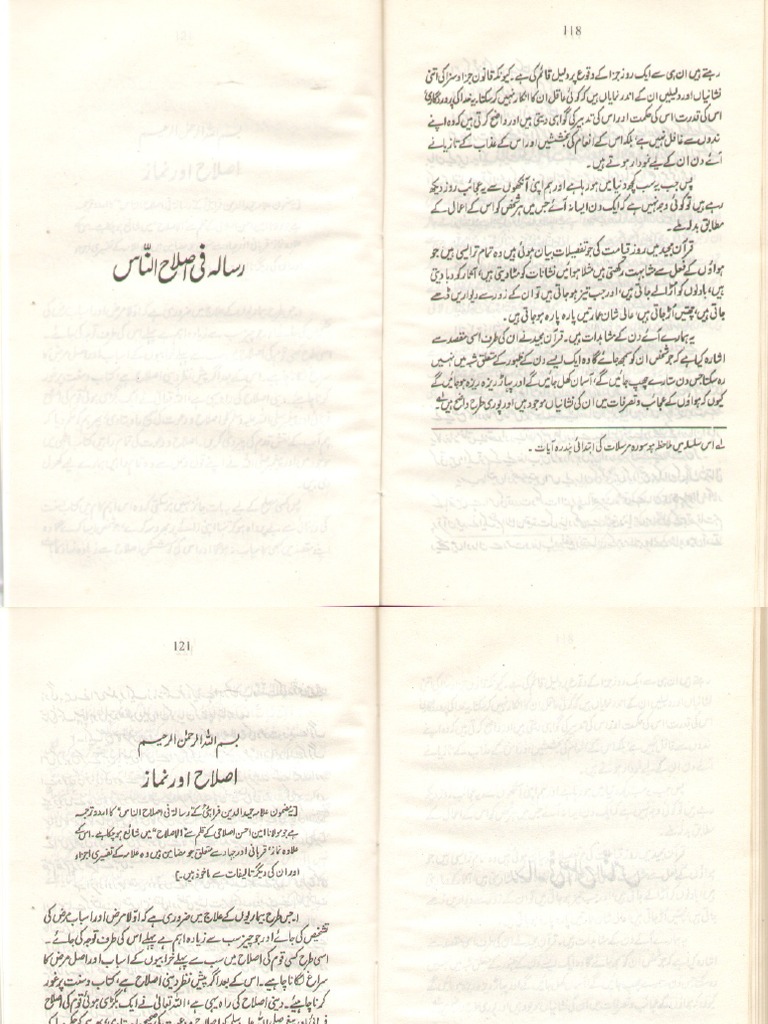 118
رہتے ہیں ان ہی سے ایک روز جزا کے وقوع پر دلیل قائم کی ہے۔ کیونکہ قانون جزا و سزا کی اتنی
نشانیاں اور دلیلیں ان کے اندر نمایاں ہیں کہ کوئی عاقل ان کا انکار نہیں کر سکتا۔ یہ خدا کی پروردگاری
اس کی قدرت اس کی حکمت اور اس کی تدبیر کی گواہی دیتی ہیں اور واضح کرتی ہیں کہ وہ اپنے
بندوں سے غافل نہیں ہے، بلکہ اس کے انعام کی بخششیں اور اس کے عذاب کے تازیانے
آئے دن ان کے لیے نمودار ہوتے ہیں۔
پس جب یہ سب کچھ دنیا میں ہو رہا ہے اور ہم اپنی آنکھوں سے یہ عجائب روز دیکھ
رہے ہیں تو کوئی وجہ نہیں ہے کہ ایک دن ایسا نہ آئے جس میں ہر شخص کو اس کے اعمال کے
مطابق بدلہ ملے۔
قرآن مجید میں روز قیامت کی جو تفصیلات بیان ہوئی ہیں وہ تمام تر ایسی ہیں جو
ہواؤں کے فعل سے مشابہت رکھتی ہیں مثلاً ہوائیں نشانات کو مٹا دیتی ہیں، آثار کو دبا دیتی
ہیں، بادلوں کو اڑا لے جاتی ہیں، اور جب تیز ہو جاتی ہیں تو ان کے زور سے دیواریں ڈھے
جاتی ہیں، چھتیں اڑ جاتی ہیں، عالی شان عمارتیں پارہ پارہ ہو جاتی ہیں۔
یہ ہمارے آئے دن کے مشاہدات ہیں۔ قرآن مجید نے ان کی طرف اسی مقصد سے
اشارہ کیا ہے کہ جو شخص ان کو سمجھ جائے گا وہ ایک ایسے دن کے ظہور کے متعلق شبہ میں نہیں
رہ سکتا جس دن ستارے چھپ جائیں گے، آسمان کھل جائیں گے اور پہاڑ ریزہ ریزہ ہو جائیں گے
کیوں کہ ہواؤں کے عجائب و تصرفات میں ان کی نشانیاں موجود ہیں اور پوری طرح واضح ہیں۔
لے اس سلسلہ میں ملاحظہ ہو سورہ مرسلات کی ابتدائی پندرہ آیات۔
رسالہ فی اصلاح النّاس
121
بسم اللہ الرحمٰن الرحیم
اصلاح اور نماز
[یہ مضمون علامہ حمید الدین فراہیؒ کے "رسالہ فی اصلاح الناس" کا اردو ترجمہ
ہے جو مولانا امین احسن اصلاحی کے قلم سے "الاصلاح" میں شائع ہو چکا ہے۔ اس کے
علاوہ نماز، قربانی اور جہاد سے متعلق جو مضامین ہیں وہ علامہ کے تفسیری اجزاء
اور ان کی دیگر تالیفات سے ماخوذ ہیں۔]
۱۔ جس طرح بیماریوں کے علاج میں ضروری ہے کہ اوّلاً مرض اور اسباب مرض کی
تشخیص کی جائے اور جو چیز سب سے زیادہ اہم ہے پہلے اس کی طرف توجہ کی جائے۔
اسی طرح کسی قوم کی اصلاح میں سب سے پہلے خرابیوں کے اسباب اور اصل مرض کا
سراغ لگانا چاہیے۔ اس کے بعد اگر پیش نظر دینی اصلاح ہے، کتاب و سنت پر غور
کرنا چاہیے۔ دینی اصلاح کی راہ یہی ہے، اللہ تعالیٰ نے ایک بگڑی ہوئی قوم کی اصلاح